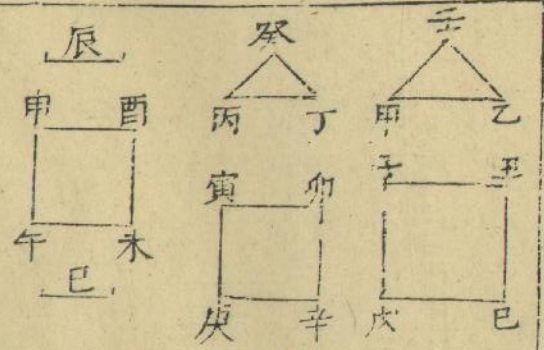 壬
甲 乙
子 丑
戊 己
癸
丙 丁
寅 卯
庚 辛
辰
申 酉
午 未
巳